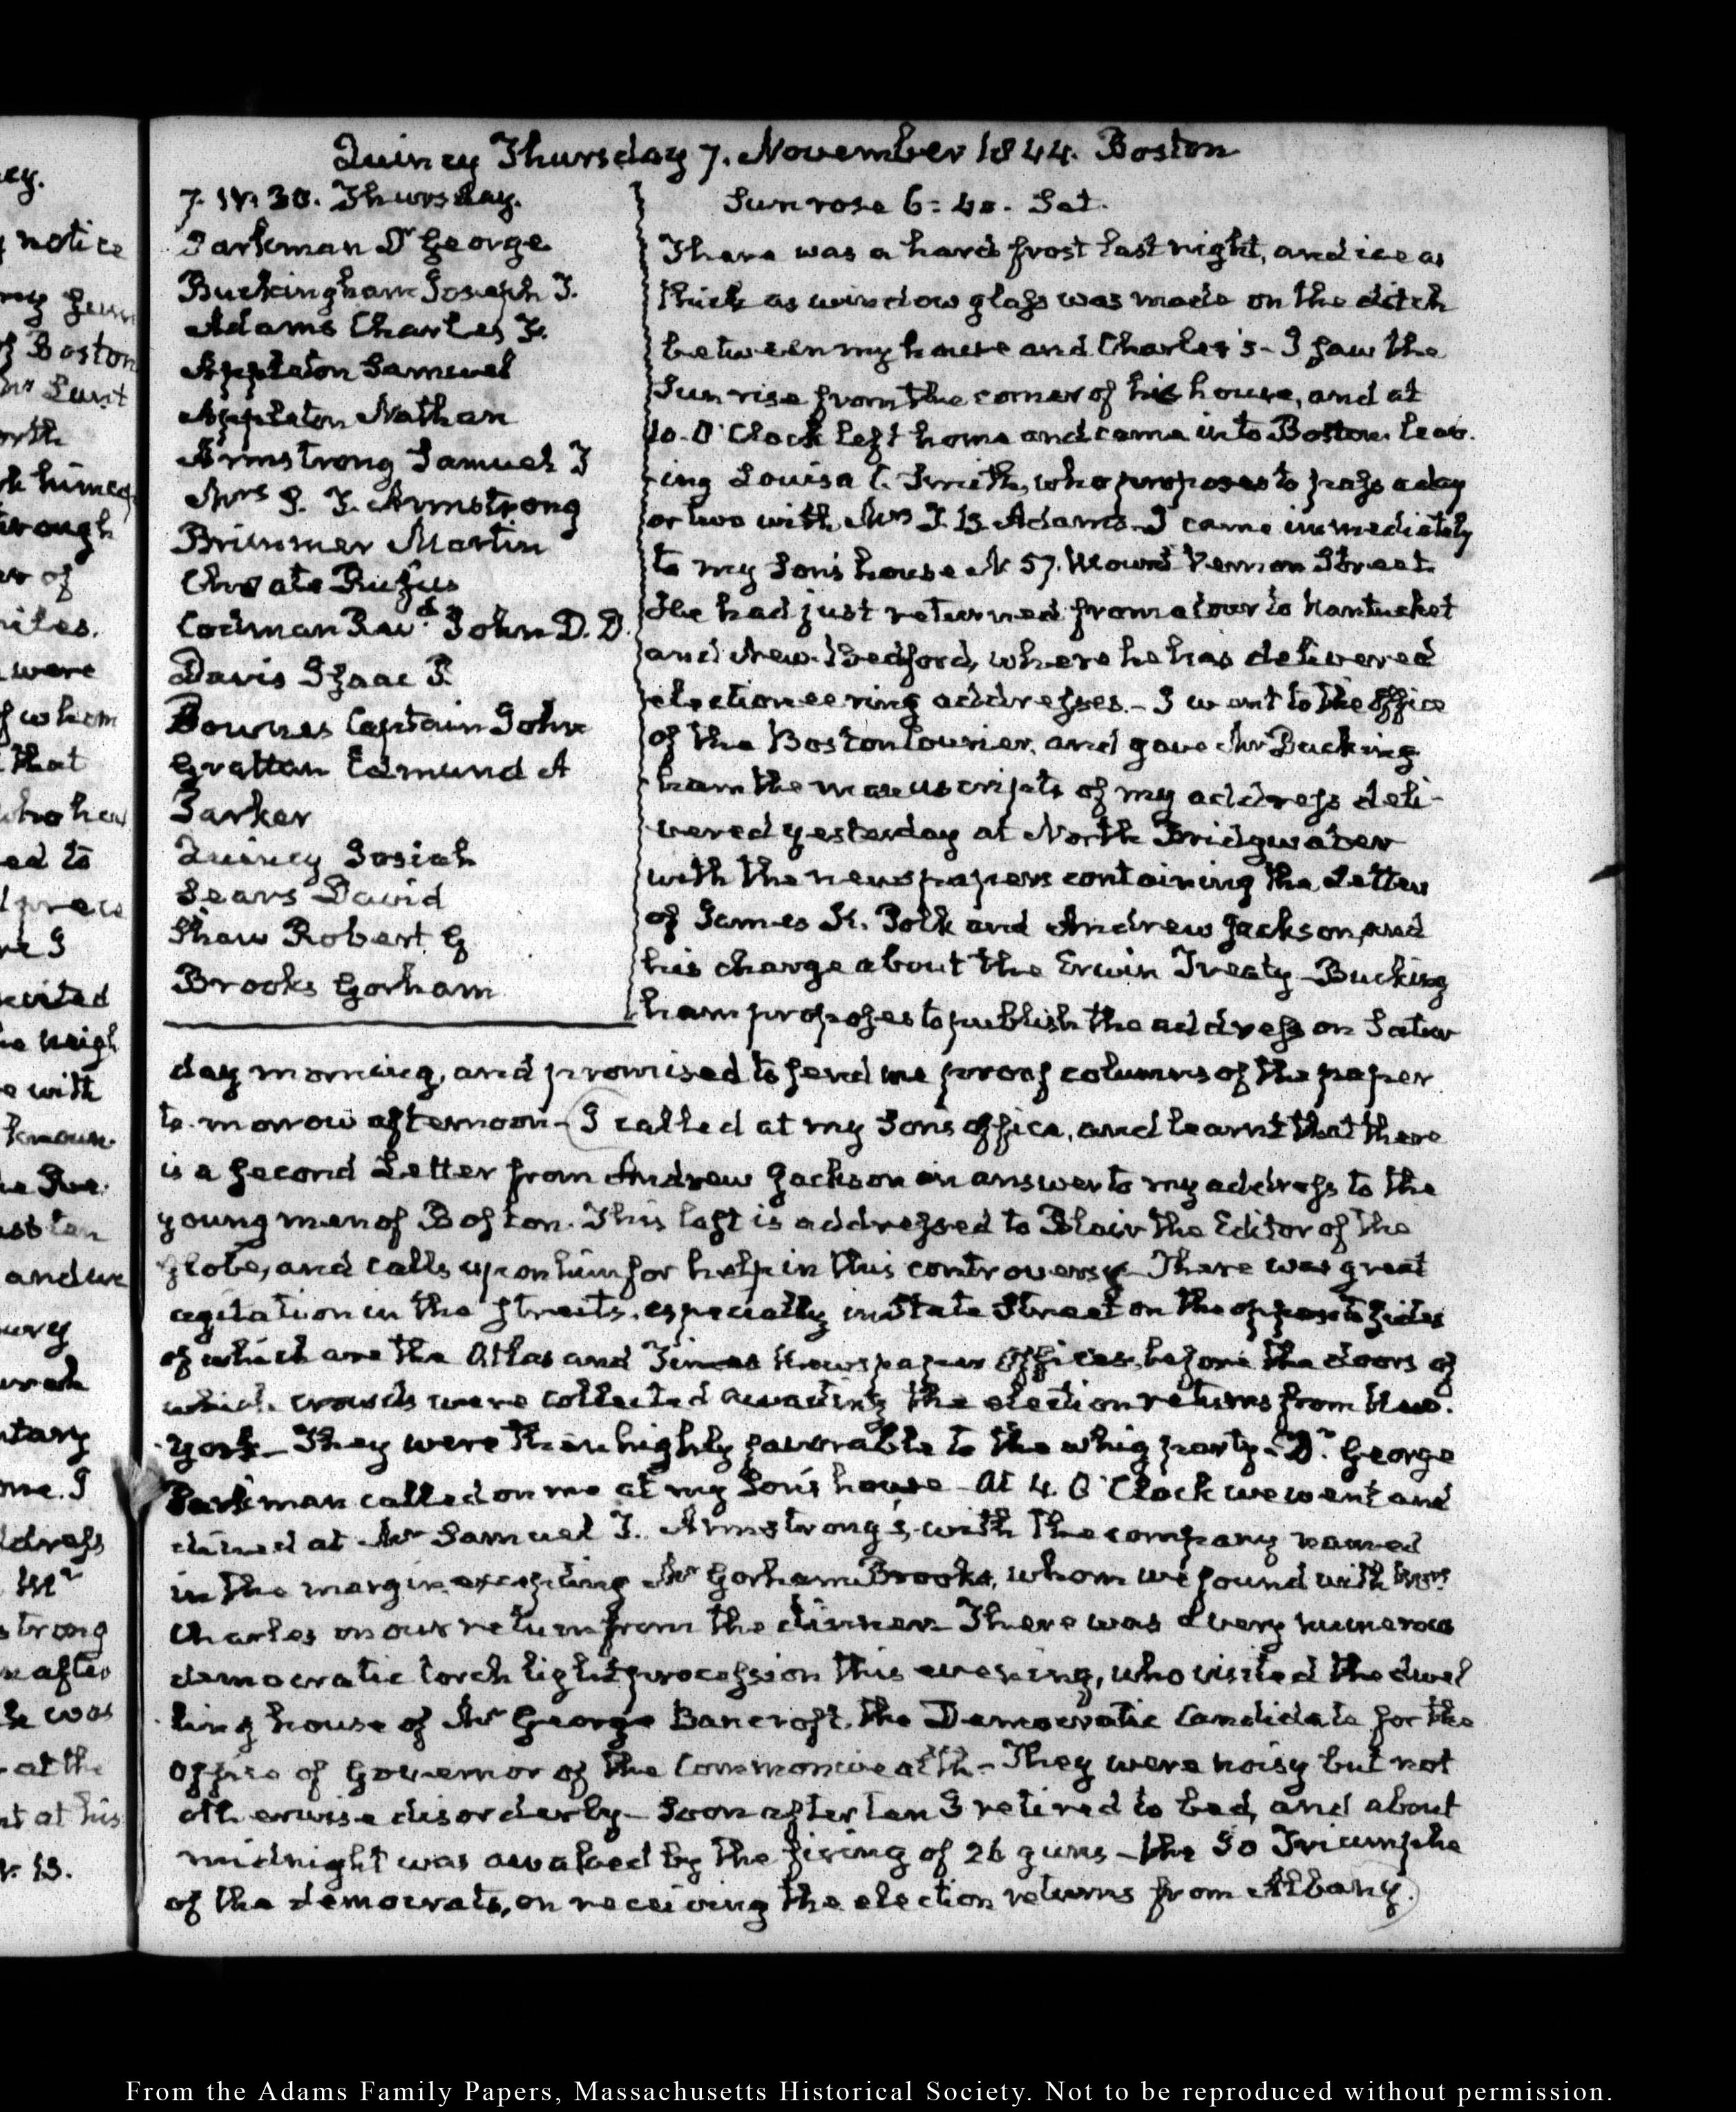 Quincy Thursday 7. November 1844. Boston
7. IV. 30. Thursday.
Parkman Dr George
Buckingham Joseph T.
Adams Charles F.
Appleton Samuel
Appleton Nathan
Armstrong Samuel T
Mrs S. T. Armstrong
Brimmer Martin
Choate Rufus
Codman Revd. John D.D.
Davis Isaac P.
Downes Captain John
Grattan Edmund A
Parker
Quincy Josiah
Sears David
Shaw Robert G
Brooks Gorham
Sun rose 6:40. Set.
There was a hard frost last night, and ice as
thick as window glass was made on the ditch
between my house and Charles's - I saw the
Sun rise from the corner of his house, and at
10. O'Clock left home and came into Boston. leav-
-ing Louisa C. Smith, who proposes to pass a day
or two with Mrs J. B. Adams. I came immediately
to my Son's house N 57. Mount Vernon Street.
He had just returned from a tour to Nantucket
and New-Bedford, where he has delivered
electioneering addresses. - I went to the Office
of the Boston Courier, and gave Mr Bucking
ham the manuscripts of my address deli-
vered yesterday at North Bridgwater
with the newspapers containing the Letters
of James K. Polk and Andrew Jackson, and
his charge about the Erwin Treaty - Bucking
ham proposes to publish the address on Satur
day morning, and promised to send me proof columns of the paper
to-morrow afternoon - I called at my Son's office, and learnt that there
is a second Letter from Andrew Jackson in answer to my address to the
young men of Boston. This last is addressed to Blair the Editor of the
Globe, and calls upon him for help in this controversy - There was great
agitation in the streets, especially in State Street on the opposite sides
of which are the Atlas and Times Newspaper Offices, before the doors of
which crowds were collected awaiting the election returns from New.
York - They were then highly favorable to the whig party - Dr. George
Parkman called on me at my Son's house - At 4. O'Clock we went and
dined at Mr Samuel T. Armstrong's, with the company named
in the margin excepting Mr Gorham Brooks, whom we found with Mrs
Charles on our return from the dinner - There was a very numerous
democratic torch light procession this evening, who visited the dwel
ling house of Mr George Bancroft, the Democratic Candidate for the
Office of Governor of the Commonwealth - They were noisy but not
otherwise disorderly - Soon after ten I retired to bed, and about
midnight was awaked by the firing of 26 guns - the Io Triumphe
of the democrats, on receiving the election returns from Albany.
From the Adams Family Papers, Massachusetts Historical Society. Not to be reproduced without permission.